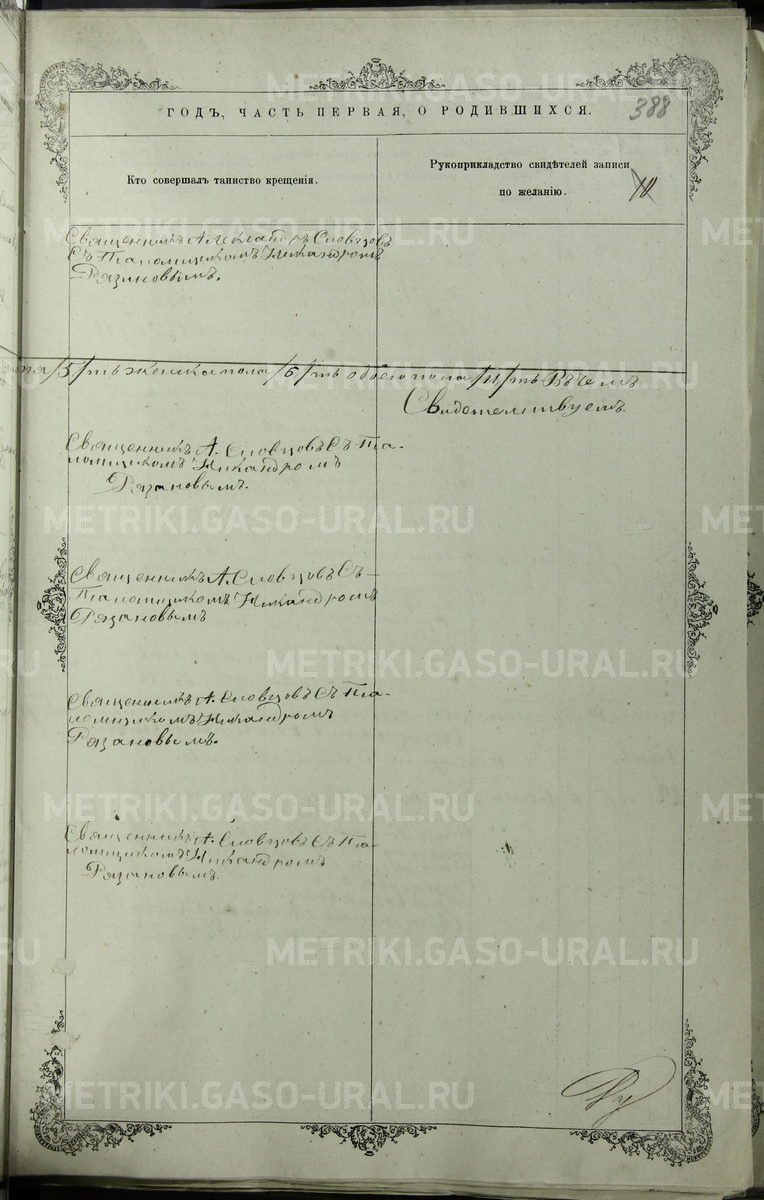 ГОДЪ, ЧАСТЬ ПЕРВАЯ, О РОДИВШИХСЯ.
388
Кто совершалъ таинство крещенія.
Рукоприкладство свидѣтелей записи
по желанію.
10
Священникъ Александръ Словцовъ
Съ Псаломщикомъ Никандромъ
Рязановымъ.
/5/ть женска пола /6/ть обоего пола /11/ть Въ чемъ
Свидетельствуемъ.
Священникъ А. Словцовъ Съ Пса-
ломщикомъ Никандромъ
Рязановымъ.
Священникъ А. Словцовъ Съ
Псаломщикомъ Никандромъ
Рязановымъ
Священникъ А. Словцовъ Съ Пса-
ломщикомъ Никандромъ
Рязановымъ.
Священникъ А. Словцовъ Съ Пса-
ломщикомъ Никандромъ
Рязановымъ.
METRIKI.GASO-URAL.RU